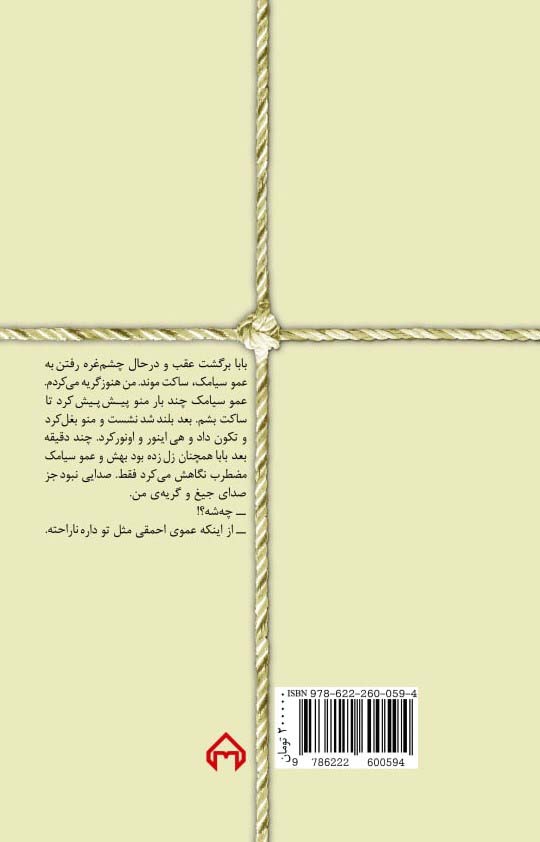 بابا برگشت عقب و درحال چشم‌غره رفتن به
عمو سیامک، ساکت موند. من هنوز گریه می‌کردم.
عمو سیامک چند بار منو پیـش‌پـیش کرد تا
ساکت بشم. بعد بلند شد نشست و منو بغل‌کرد
و تکون داد و هی اینور و اونور کرد. چند دقیقه
بعد بابا همچنان زل زده بود بهش و عمو سیامک
مضطرب نگاهش می‌کرد فقط. صدایی نبود جز
صدای جیغ و گریه‌ی من.
ــ چه‌شه؟!
ــ از اینکه عموی احمقی مثل تو داره ناراحته.
ISBN 978-622-260-059-4
9 786222 600594
۲۰۰۰۰ تومان